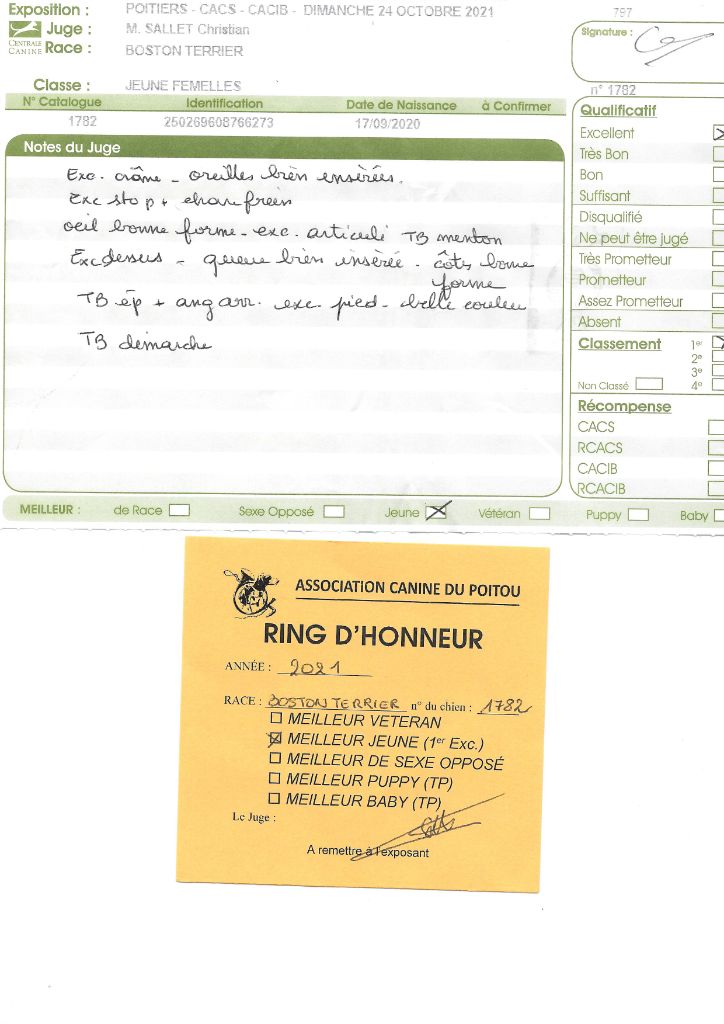 Exposition : POITIERS - CACS - CACIB - DIMANCHE 24 OCTOBRE 2021
797
Juge : M. SALLET Christian
CENTRALE CANINE
Race : BOSTON TERRIER
Signature :
Classe : JEUNE FEMELLES
n° 1782
N° Catalogue Identification Date de Naissance à Confirmer
1782 250269608766273 17/09/2020
Notes du Juge
Exc. crâne - oreilles bien insérées.
Exc stop + chanfrein
oeil bonne forme - exc. articulé TB menton
Exc dessus - queue bien insérée - côtes bonne
forme
TB ép + ang arr. exc. pied - belle couleu
TB démarche
Qualificatif
Excellent
Très Bon
Bon
Suffisant
Disqualifié
Ne peut être jugé
Très Prometteur
Prometteur
Assez Prometteur
Absent
Classement 1er
2e
3e
Non Classé 4e
Récompense
CACS
RCACS
CACIB
RCACIB
MEILLEUR : de Race Sexe Opposé Jeune Vétéran Puppy Baby
ASSOCIATION CANINE DU POITOU
RING D'HONNEUR
ANNÉE : 2021
RACE : BOSTON TERRIER n° du chien : 1782
MEILLEUR VETERAN
MEILLEUR JEUNE (1er Exc.)
MEILLEUR DE SEXE OPPOSÉ
MEILLEUR PUPPY (TP)
MEILLEUR BABY (TP)
Le Juge :
A remettre à l'exposant